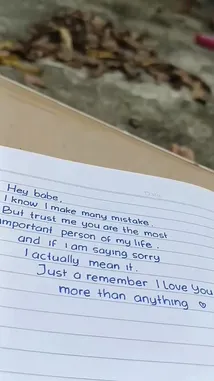 Hey babe.
I know I make many mistake.
But trust me you are the most
important person of my life.
and if I am saying sorry
I actually mean it.
Just a remember I Love You
more than anything ♡